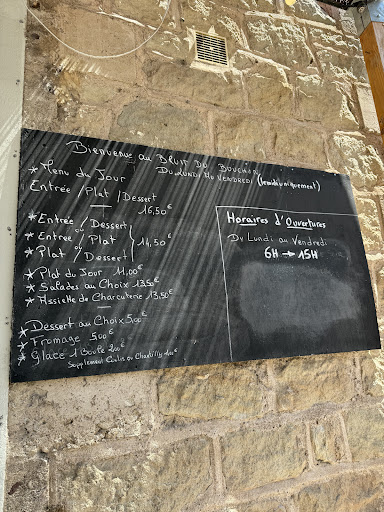 Bienvenue au BRUIT DU BOUCHON
* Menu du Jour DU LUNDI AU VENDREDI (le midi uniquement)
Entrée / Plat / Dessert
16,50€
* Entrée / Dessert
ou
* Entrée / Plat 14,50€
ou
* Plat / Dessert
* Plat du Jour 11,00€
* Salades au Choix 13,50€
* Assiette de Charcuterie 13,50€
* Dessert au Choix 5,00€
* Fromage 5,00€
* Glace 1 Boule 2,00€
Supplement Coulis ou Chantilly 1,00€
Horaires d'Ouvertures
Du Lundi au Vendredi
6H → 15H